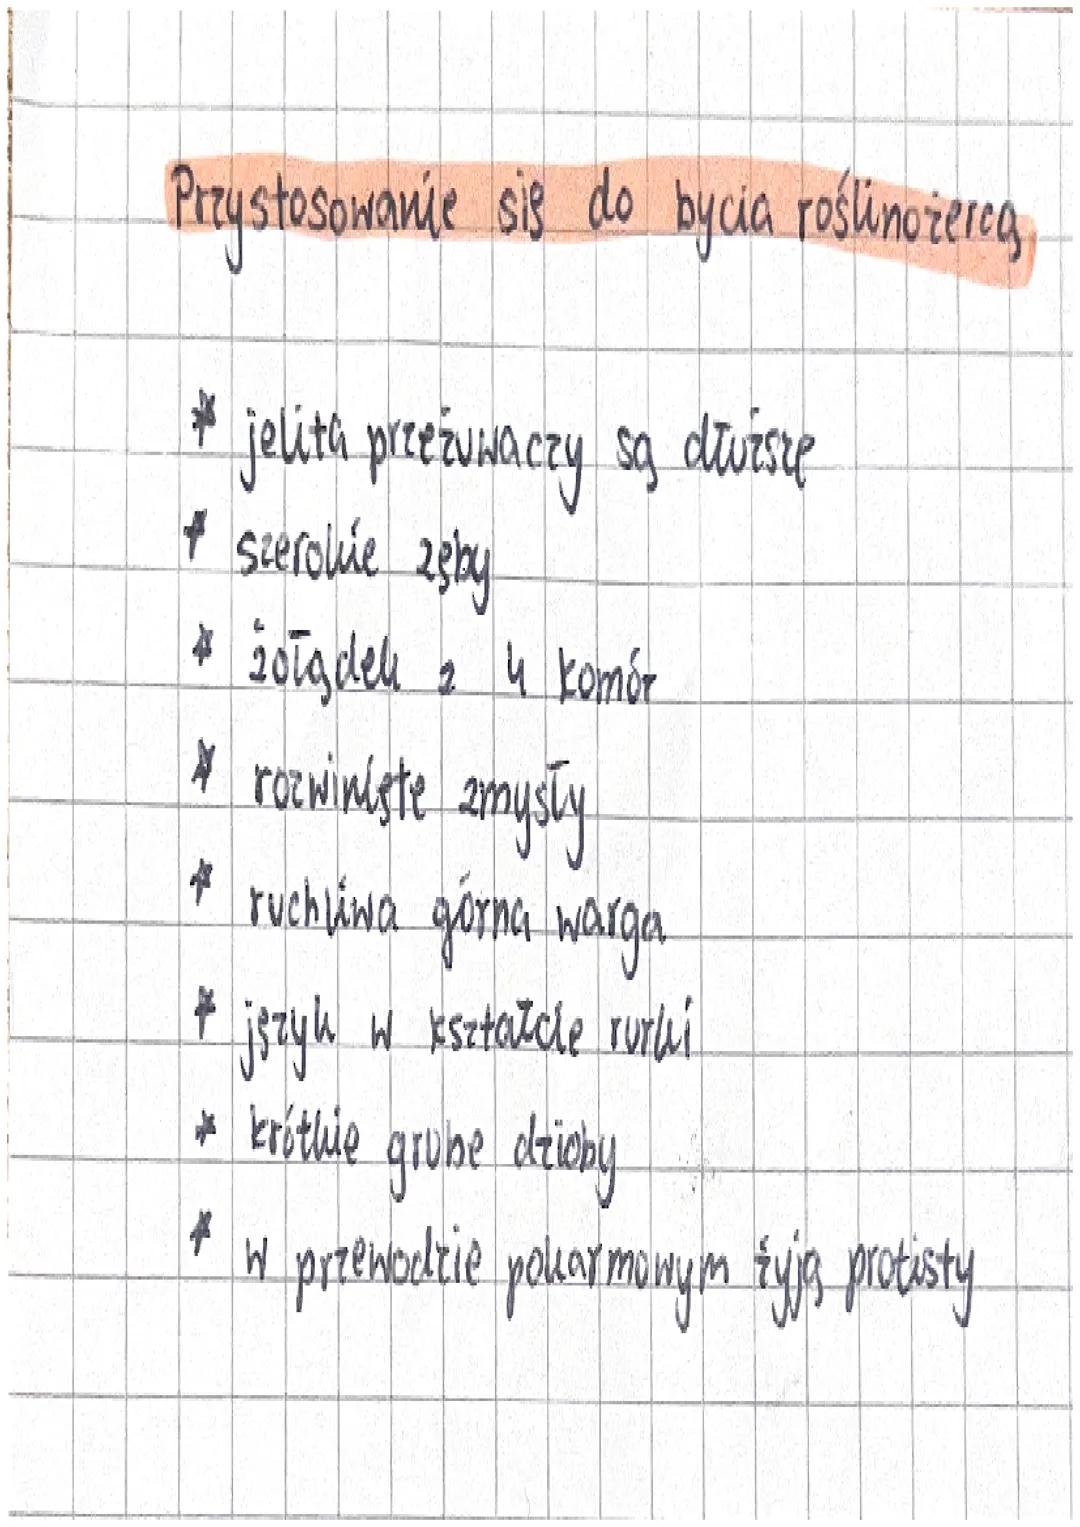 Przystosowanie się do bycia roślinożercą
* jelita przeżuwaczy są dłuższe
* szerokie zęby
* żołądek z 4 komór
* rozwinięte zmysły
* ruchliwa górna warga
* język w kształcie rurki
* krótkie grube dzioby
* w przewodzie pokarmowym żyją protisty